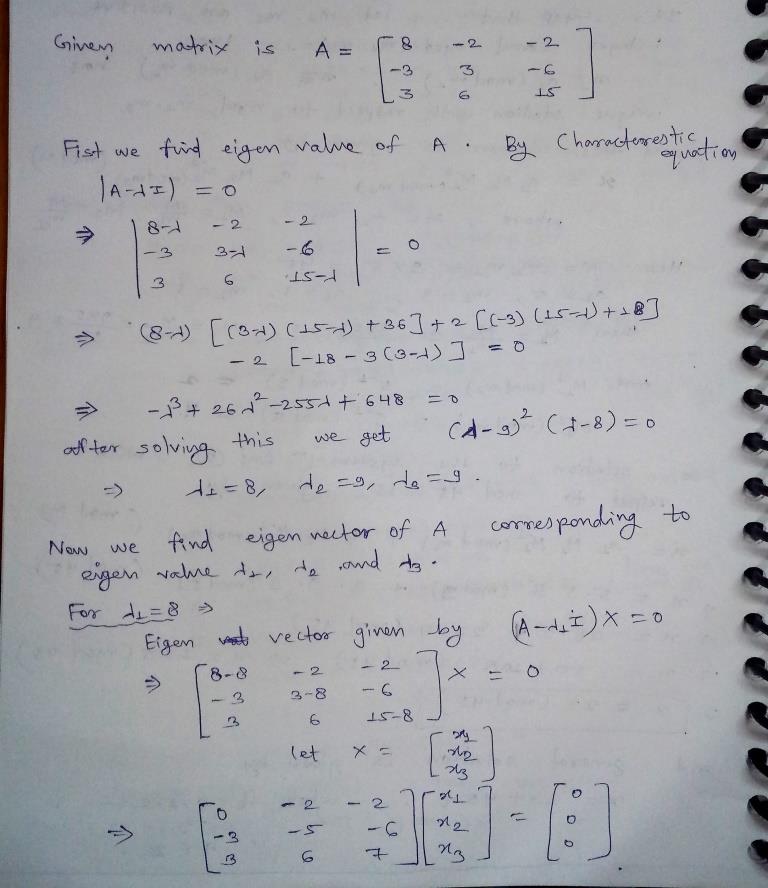 Given matrix is A = [ 8 -2 -2
-3 3 -6
3 6 15 ]
Fist we find eigen value of A . By Characterestic
equation
|A-λI| = 0
⇒ | 8-λ -2 -2
-3 3-λ -6
3 6 15-λ | = 0
⇒ (8-λ) [(3-λ) (15-λ) +36] + 2 [(-3) (15-λ) + 18]
- 2 [-18 - 3 (3-λ)] = 0
⇒ -λ³ + 26λ² - 255λ + 648 = 0
after solving this we get (λ-9)² (λ-8) = 0
⇒ λ1 = 8, λ2 = 9, λ3 = 9 .
Now we find eigen vector of A corresponding to
eigen value λ1, λ2 and λ3 .
For λ1 = 8 ⇒
Eigen vector given by (A-λ1I) X = 0
⇒ [ 8-8 -2 -2
-3 3-8 -6
3 6 15-8 ] X = 0
let X = [ x1
x2
x3 ]
⇒ [ 0 -2 -2
-3 -5 -6
3 6 7 ] [ x1
x2
x3 ] = [ 0
0
0 ]